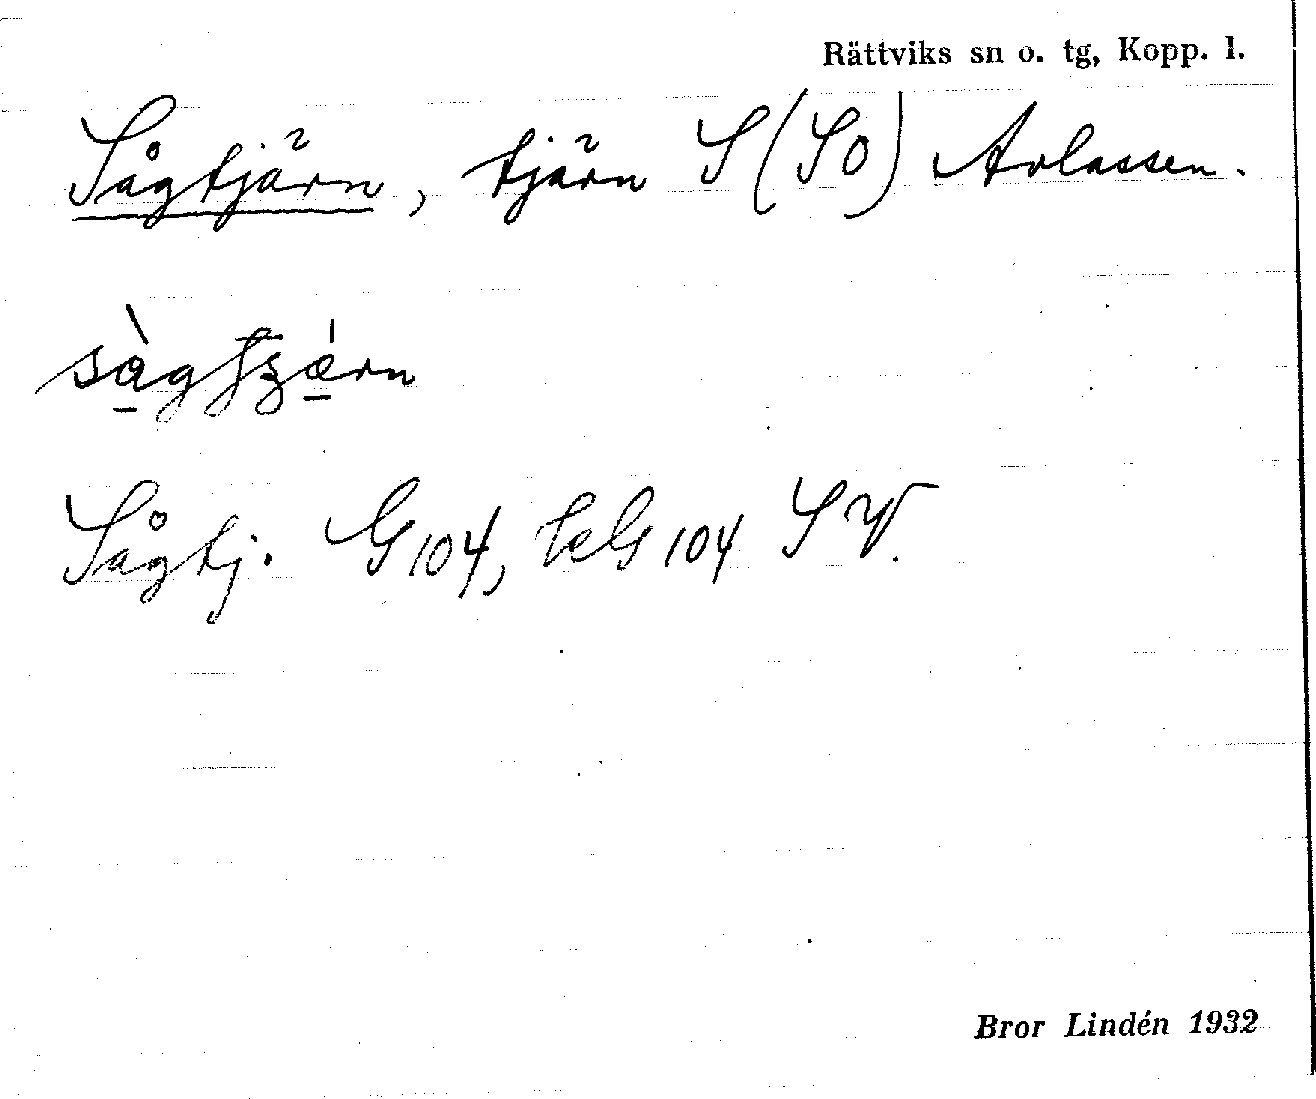 Rättviks sn o. tg, Kopp. l.
Sågtjärn, tjärn S (SO) Arlassen.
Sågtj. G 104, tèG 104 SV.
Bror Lindén 1932